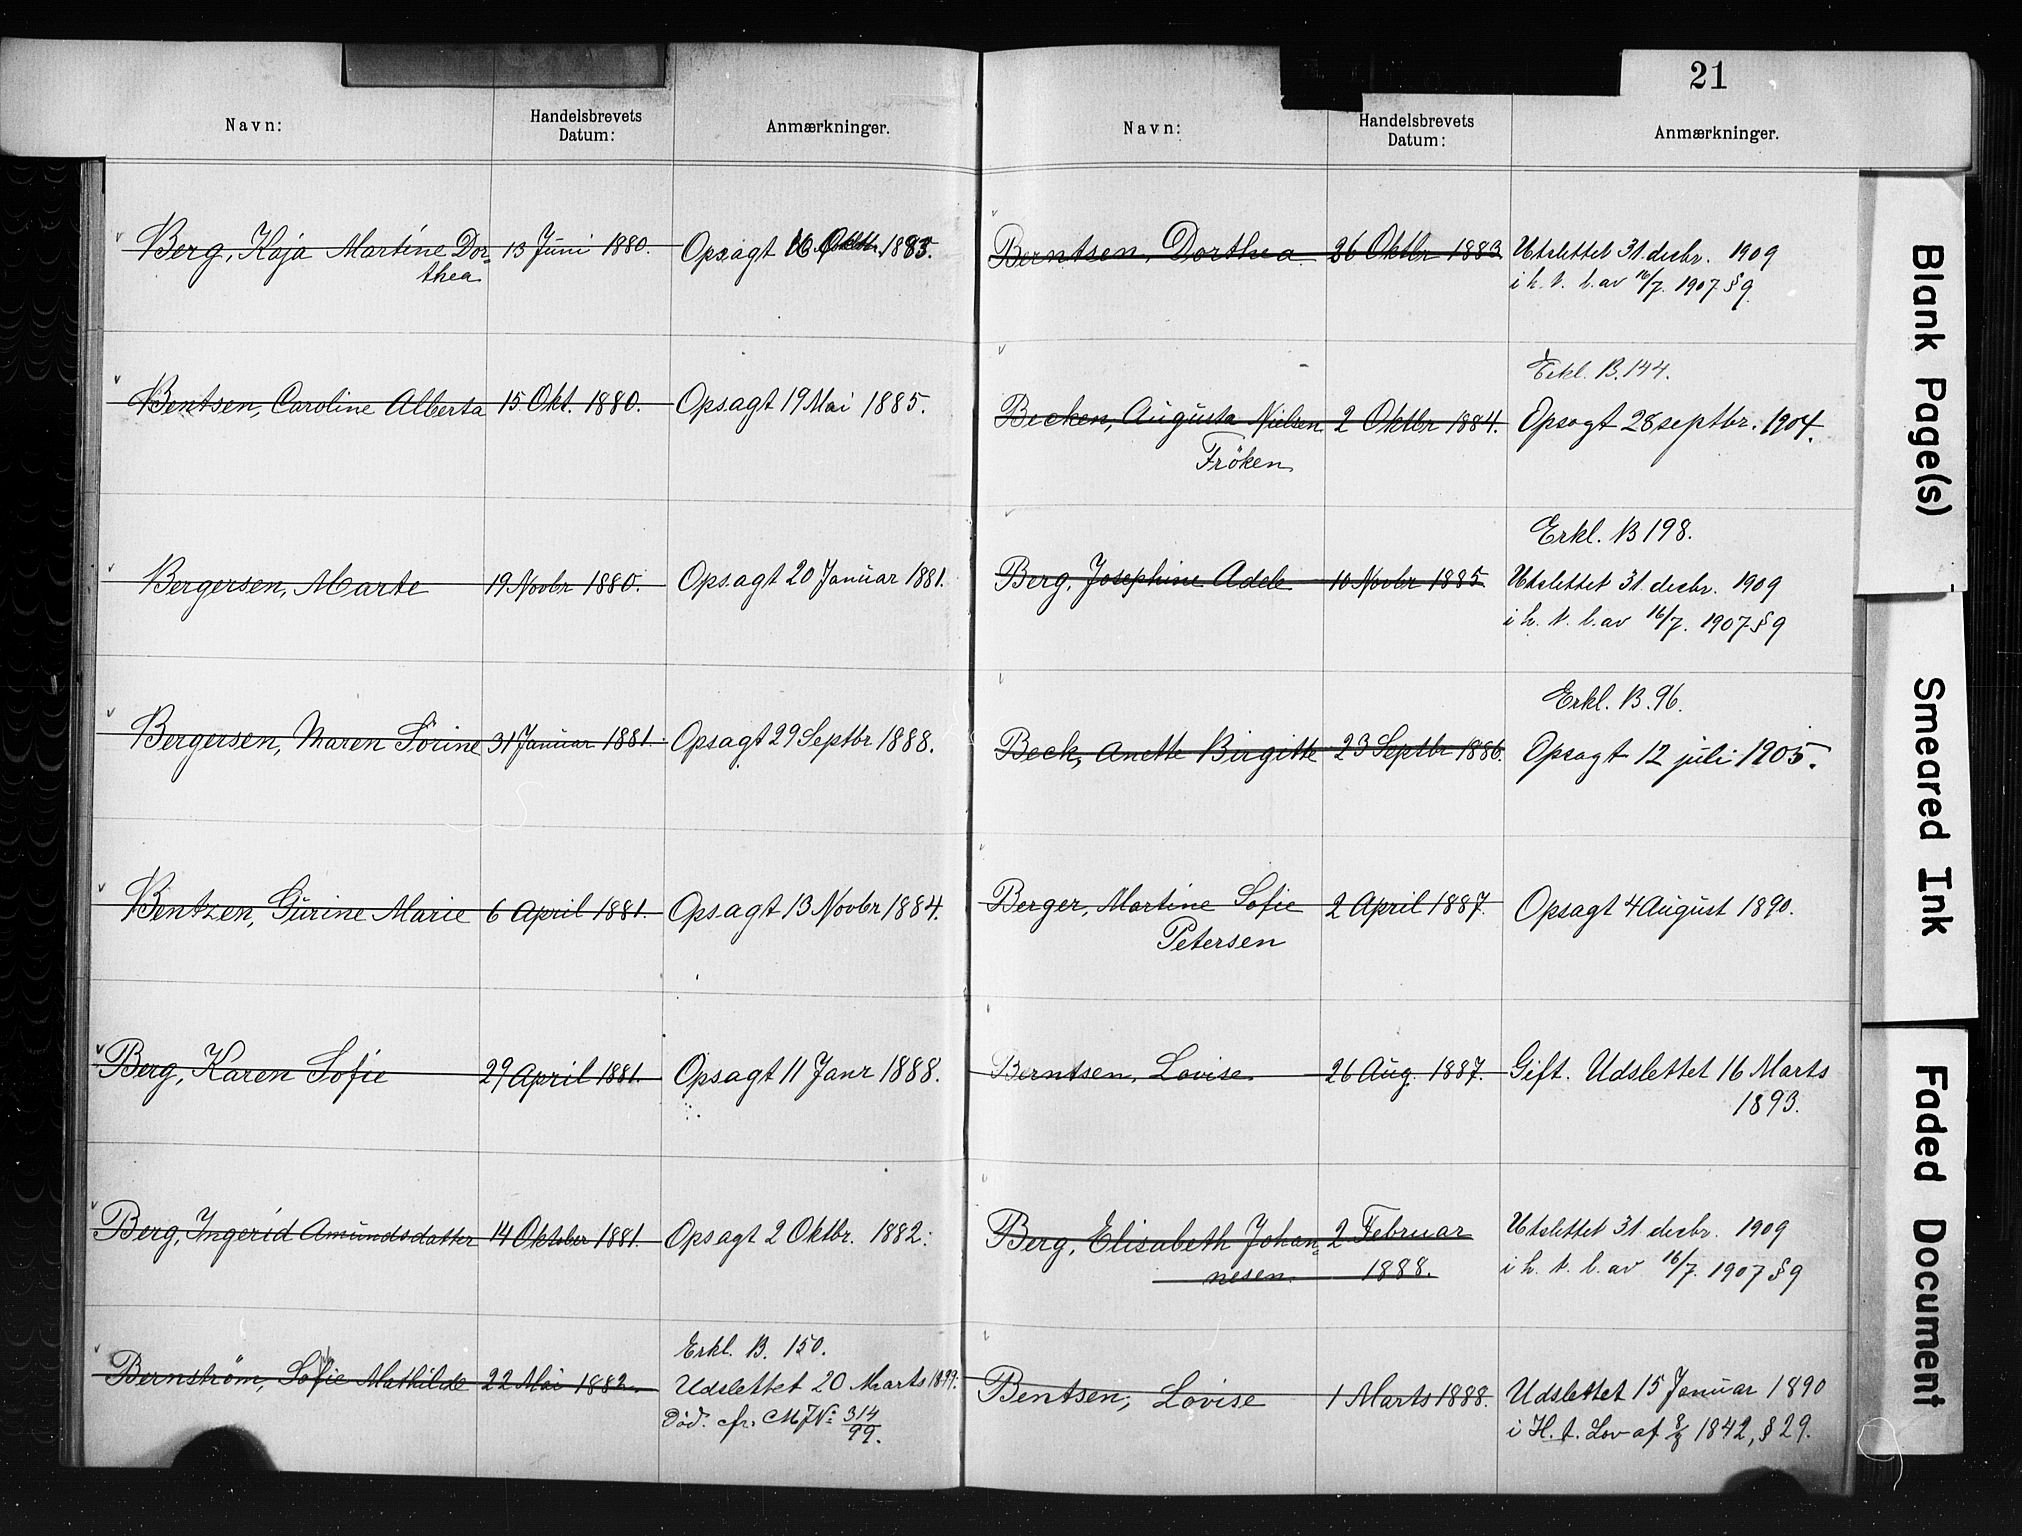 Navn: Handelsbrevets Datum: Anmærkninger.
Berg, Kaja Martine Dor- 13 Juni 1880. Opsagt 16 Oktbr. 1883.
thea
Bentsen, Caroline Alberta 15 Okt. 1880. Opsagt 19 Mai 1885.
Bergersen, Marte 19 Novbr 1880. Opsagt 20 Januar 1881.
Bergersen, Maren Sörine 31 Januar 1881. Opsagt 29 Septbr 1888.
Bentzen, Gurine Marie 6 April 1881. Opsagt 13 Novbr 1884.
Berg, Karen Sofie 29 April 1881. Opsagt 11 Janr 1888.
Berg, Ingerid Amundsdatter 14 Oktober 1881. Opsagt 2 Oktbr. 1882.
Erkl. B. 150.
Bernström, Sofie Mathilde 22 Mai 1882. Udslettet 20 Marts 1899.
Död. cfr. MJ No 314/99.
21
Navn: Handelsbrevets Datum: Anmærkninger.
Berntsen, Dorthea 26 Oktbr 1883 Utslettet 31 decbr. 1909
i h. t. l. av 16/7. 1907 § 9
Erkl. B. 144.
Becken, Augusta Nielsen 2 Oktbr 1884. Opsagt 28 septbr. 1904.
Fröken
Erkl. B 198.
Berg, Josephine Adele 10 Novbr 1885 Utslettet 31 decbr. 1909
i h. t. l. av 16/7. 1907 § 9
Erkl. B. 96.
Beck, Anette Birgitte 23 Septbr 1886. Opsagt 12 juli 1905.
Berger, Martine Sofie 2 April 1887. Opsagt 4 August 1890.
Petersen
Berntsen, Lovise 26 Aug. 1887. Gift. Udslettet 16 Marts
1893.
Berg, Elisabeth Johan- 2 Februar Utslettet 31 decbr. 1909
nesen. 1888. i h. t. l. av 16/7. 1907 § 9
Bentsen, Lovise 1 Marts 1888. Udslettet 15 Januar 1890
i H. t. Lov af 8/8 1842, § 29.
Blank Page(s)
Smeared Ink
Faded Document